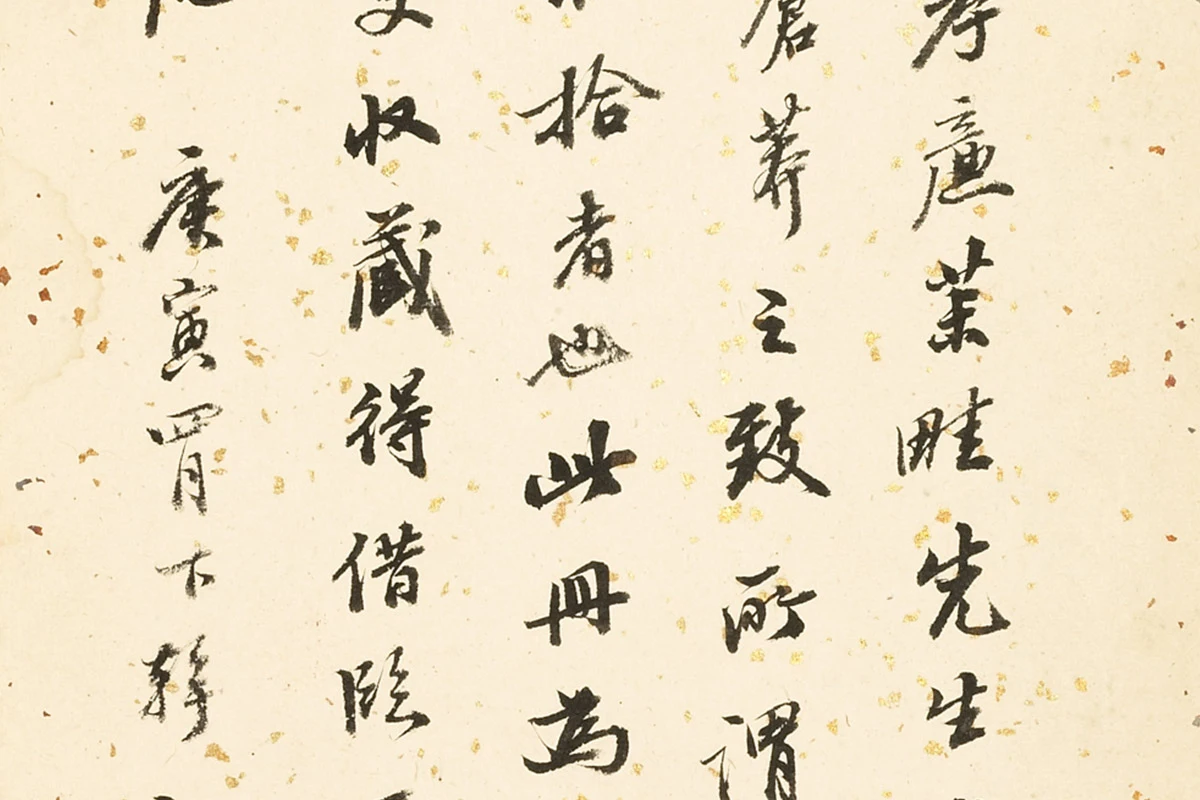 孝廉畦先生
蒼莽之致所謂
拾者也此冊為
收藏得借臨
庚寅四月下澣